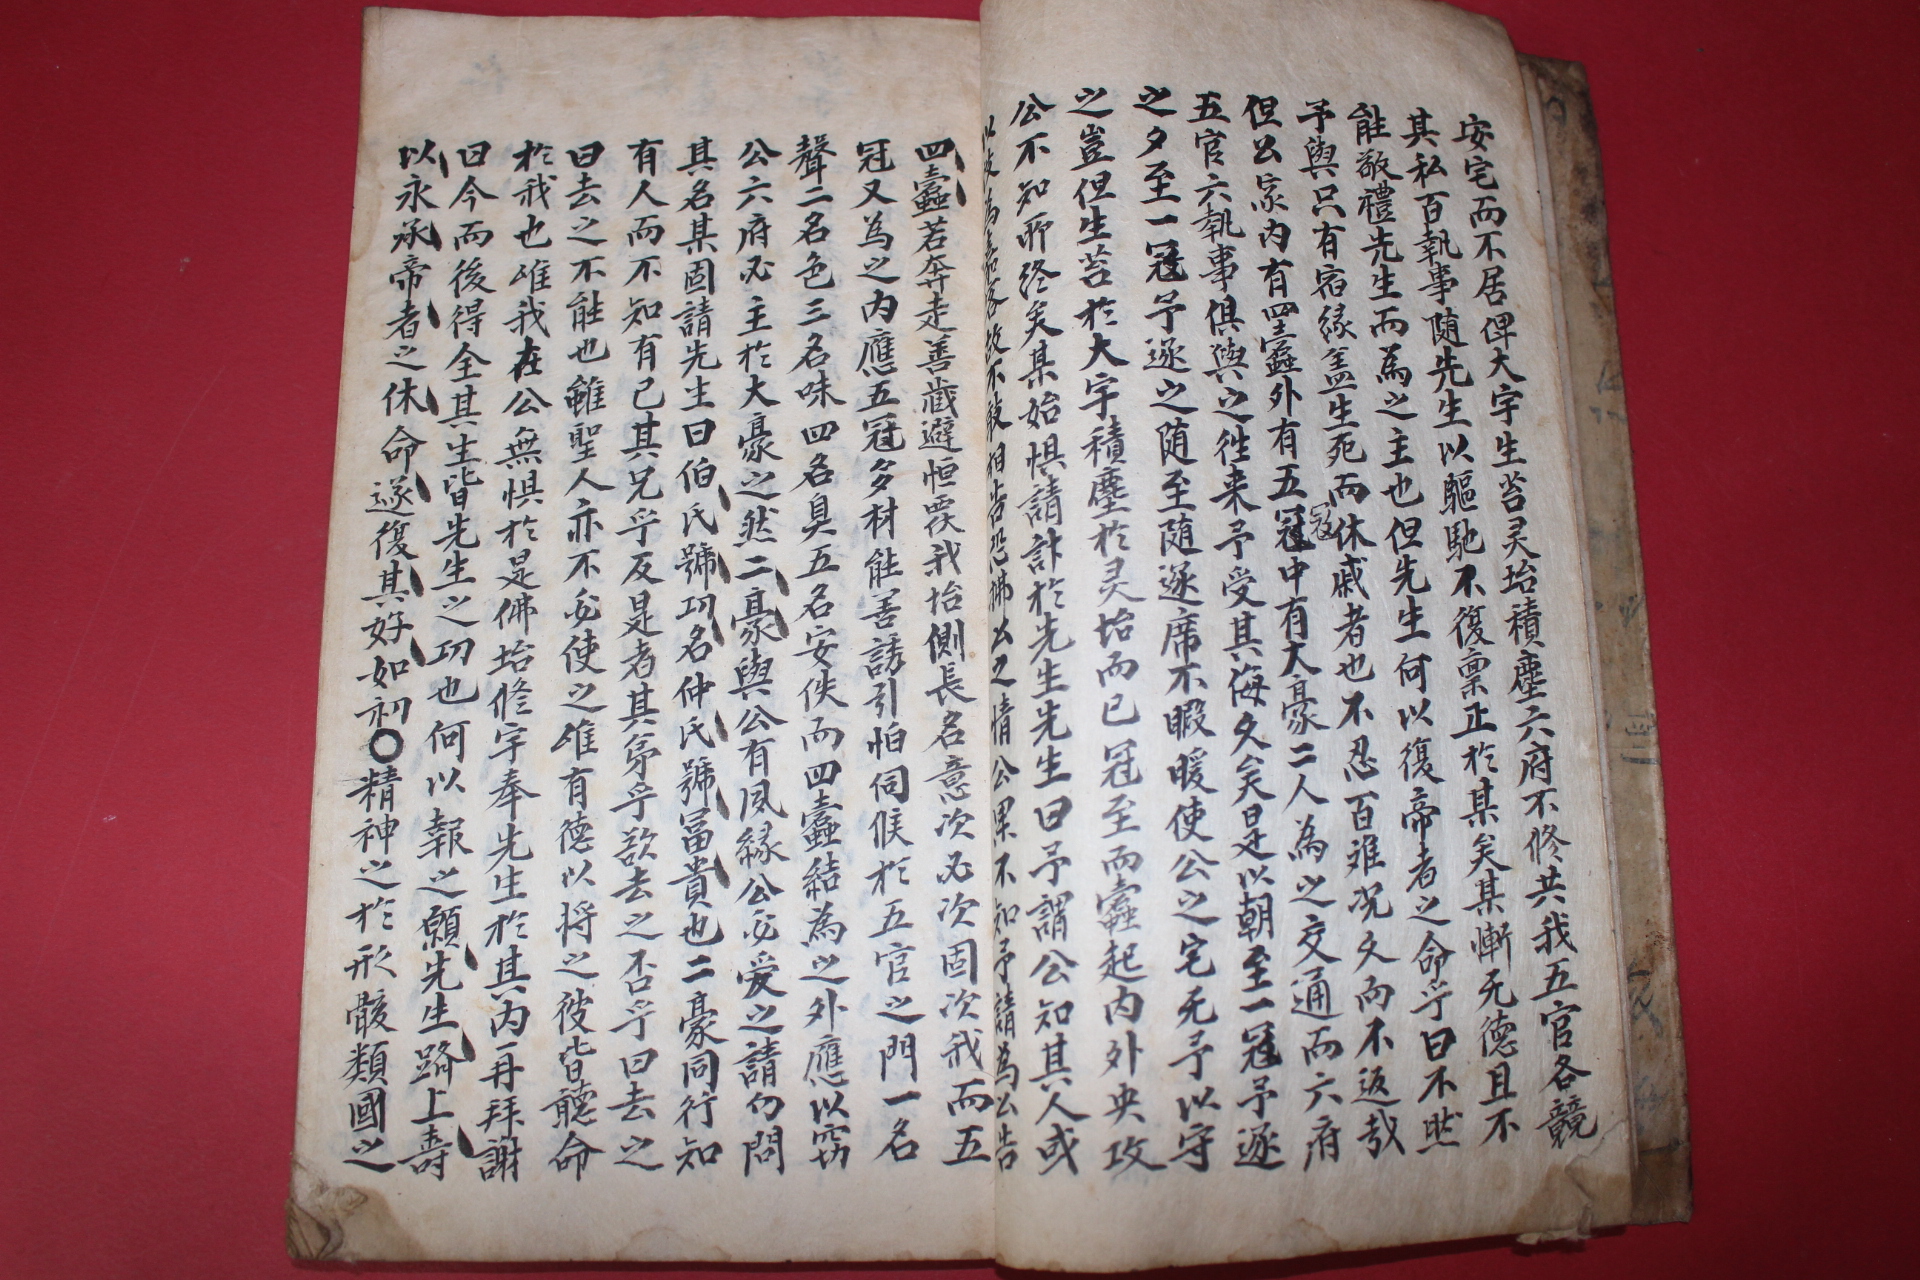 安宅而不居俾大宇生苔灵坮積塵六府不修共我五官各競
其私百執事随先生以驅馳不復稟正於某矣某慚无德且不
能敬禮先生而為之主也但先生何以復帝者之命乎曰不然
予與只有宿緣盖生死而休戚者也不忍百难况久而不返哉
但公家内有四蠹外有五冦中有大豪二人為之交通而六府
寇
五官六執事俱與之徃来予受其侮久矣是以朝至一冦予遂
之夕至一冦予遂之随至随遂席不暇暖使公之宅无予以守
之豈但生苔於大宇積塵於灵坮而已冦至而蠹起内外央攻
公不知所终矣某始惧請計於先生先生曰予謂公知其人或
以故為嘉客故不敢相告恐拂公之情公果不知予請為公告
四蠹若奔走善藏避恒覆我坮側長名意次必次固次我而五
冠又為之内應五冠多材能善誘引怕伺候於五官之門一名
聲二名色三名味四名臭五名安佚而四蠹結為之外應以窃
公六府必主於大豪之然二豪與公有夙緣公必爱之請勿問
其名某固請先生曰伯氏號功名仲氏號冨貴也二豪同行知
有人而不知有己其兄乎反是者其弟乎欲去之否乎曰去之
曰去之不能也雖聖人亦不必使之唯有德以将之彼皆聽命
於我也唯我在公無惧於是佛坮修宇奉先生於其内再拜謝
曰今而後得全其生皆先生之功也何以報之願先生躋上壽
以永承帝者之休命遂復其好如初〇精神之於形骸類國之